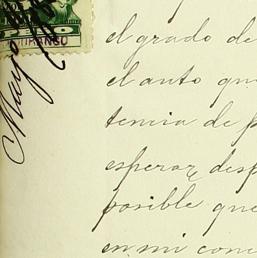 PESO
DURANGO
Mayo
el grado de
el auto qu
tencia de p
esperar, desp
posible que
en mi conc